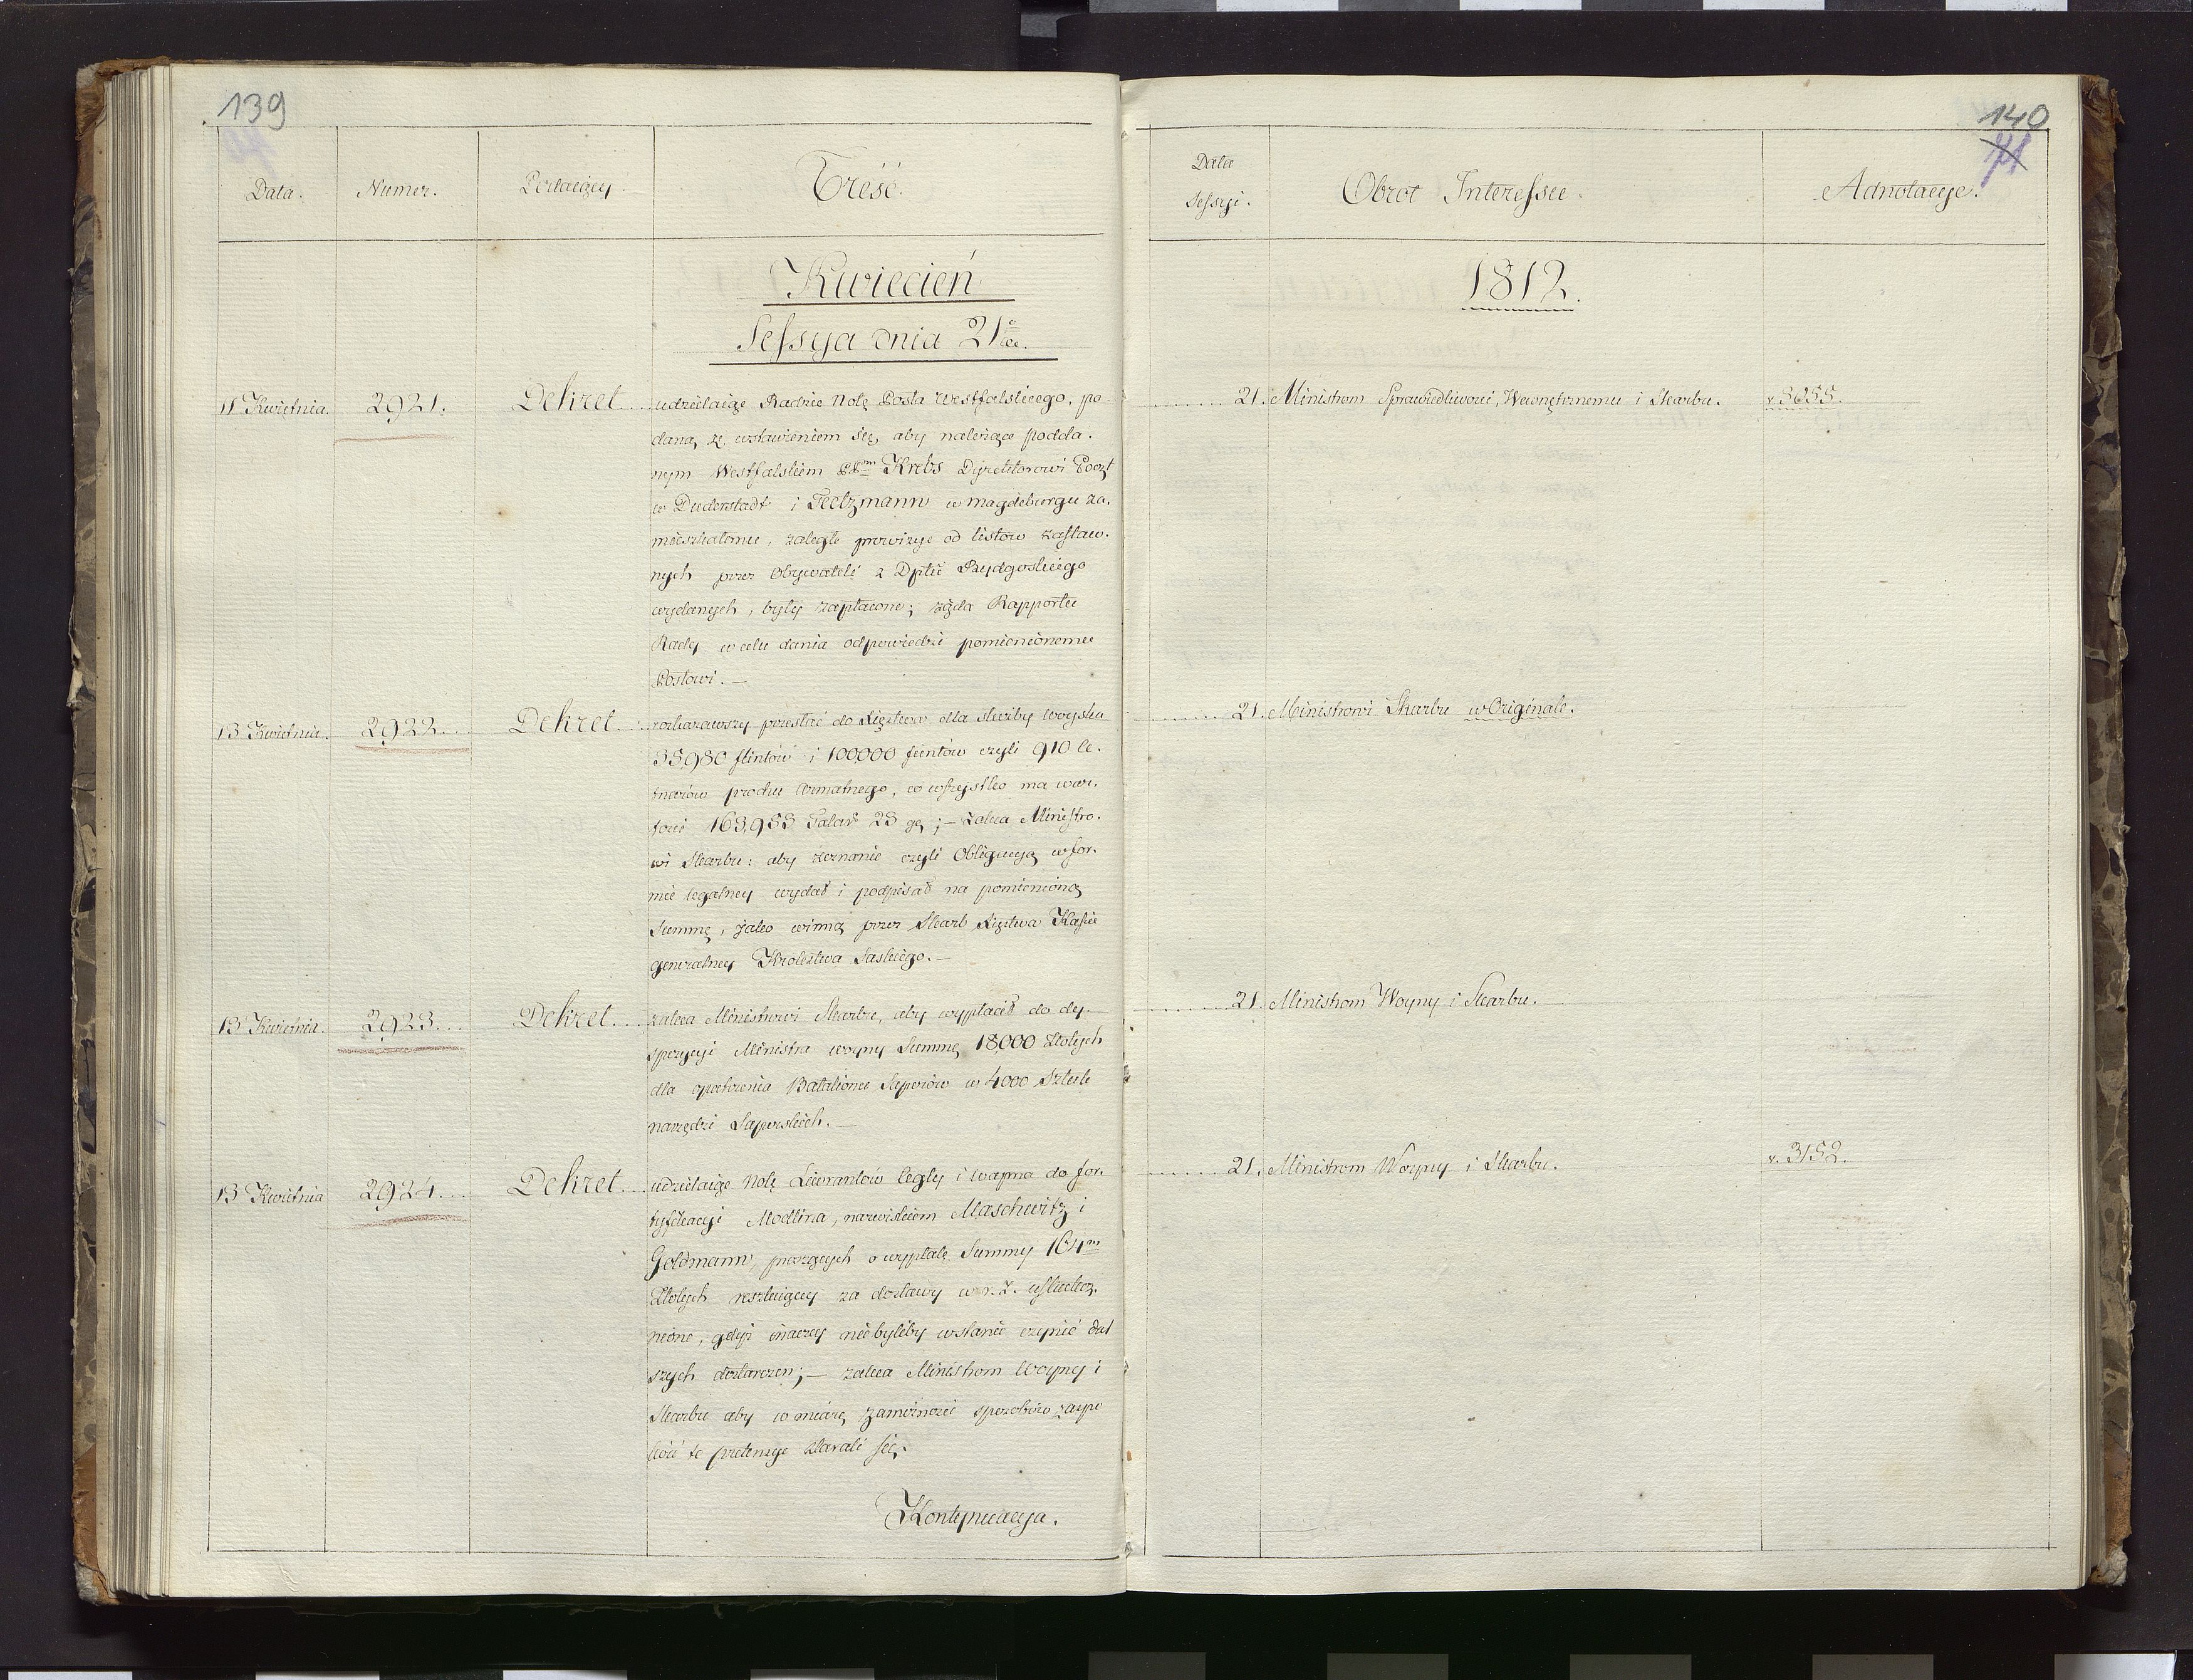 139
Data.
Numer.
Podaiący.
Treść.
Kwiecień
Sessya dnia 21°
11 Kwietnia.
2921.
Dekret
udzielaiąc Radzie Notę Posła Westfalskiego, po-
daną z wstawieniem się, aby należące podda-
nym Westfalskim Krebs Dyrektorowi Poczt
w Duderstadt i Teetzmann w Magdeburgu za-
mieszkałemu, zaległe prowizye od listów zastaw-
nych przez Obywateli z Dptu Bydgoskiego
wydanych, były zapłacone; żąda Rapportu
Rady w celu dania odpowiedzi pomienionemu
Posłowi.—
13 Kwietnia.
2922...
Dekret
rozkazawszy przesłać do Xięstwa dla służby woyska
35,980 flintów i 100,000 funtów czyli 910 ce-
tnarów prochu armatnego, co wszystko ma war-
tości 163,953 Talar 23 gg;— zaleca Ministro-
wi Skarbu: aby zeznanie czyli Obligacyą w for-
mie legalney wydał i podpisał na pomienioną
Summę, jako winną przez Skarb Xięstwa Kassie
generalney Królestwa Saskiego.—
13 Kwietnia.
2923...
Dekret
zaleca Ministrowi Skarbu, aby wypłacił do dy-
spozycyi Ministra woyny Summę 18,000 Złotych
dla opatrzenia Batalionu Saperów w 4000 Sztuk
narzędzi Saperskich.—
13 Kwietnia
2924...
Dekret
udzielaiąc Notę Liwrantów Cegły i wapna do for-
tyfikacyi Modlina, nazwiskiem Maschwitz i
Goldmann, proszących o wypłatę Summy 164m
Złotych resztuiącey za dostawy w r. z. uskutecz-
nione, gdyż inaczey niebyliby wstanie czynić dal
szych dostarczeń;— zaleca Ministrom Woyny i
Skarbu aby w miarę zamożności sposobów zaspo
koić te pretensye starali się.
Kontynuacya.
140
71
Data
Sessyi.
Obrot Interessu.
Adnotacye.
1812.
21. Ministrom Sprawiedliwości, Wewnętrznemu i Skarbu.
v. 3055.
21. Ministrowi Skarbu w Originale.
21. Ministrom Woyny i Skarbu.
21. Ministrom Woyny i Skarbu.
v. 3152.